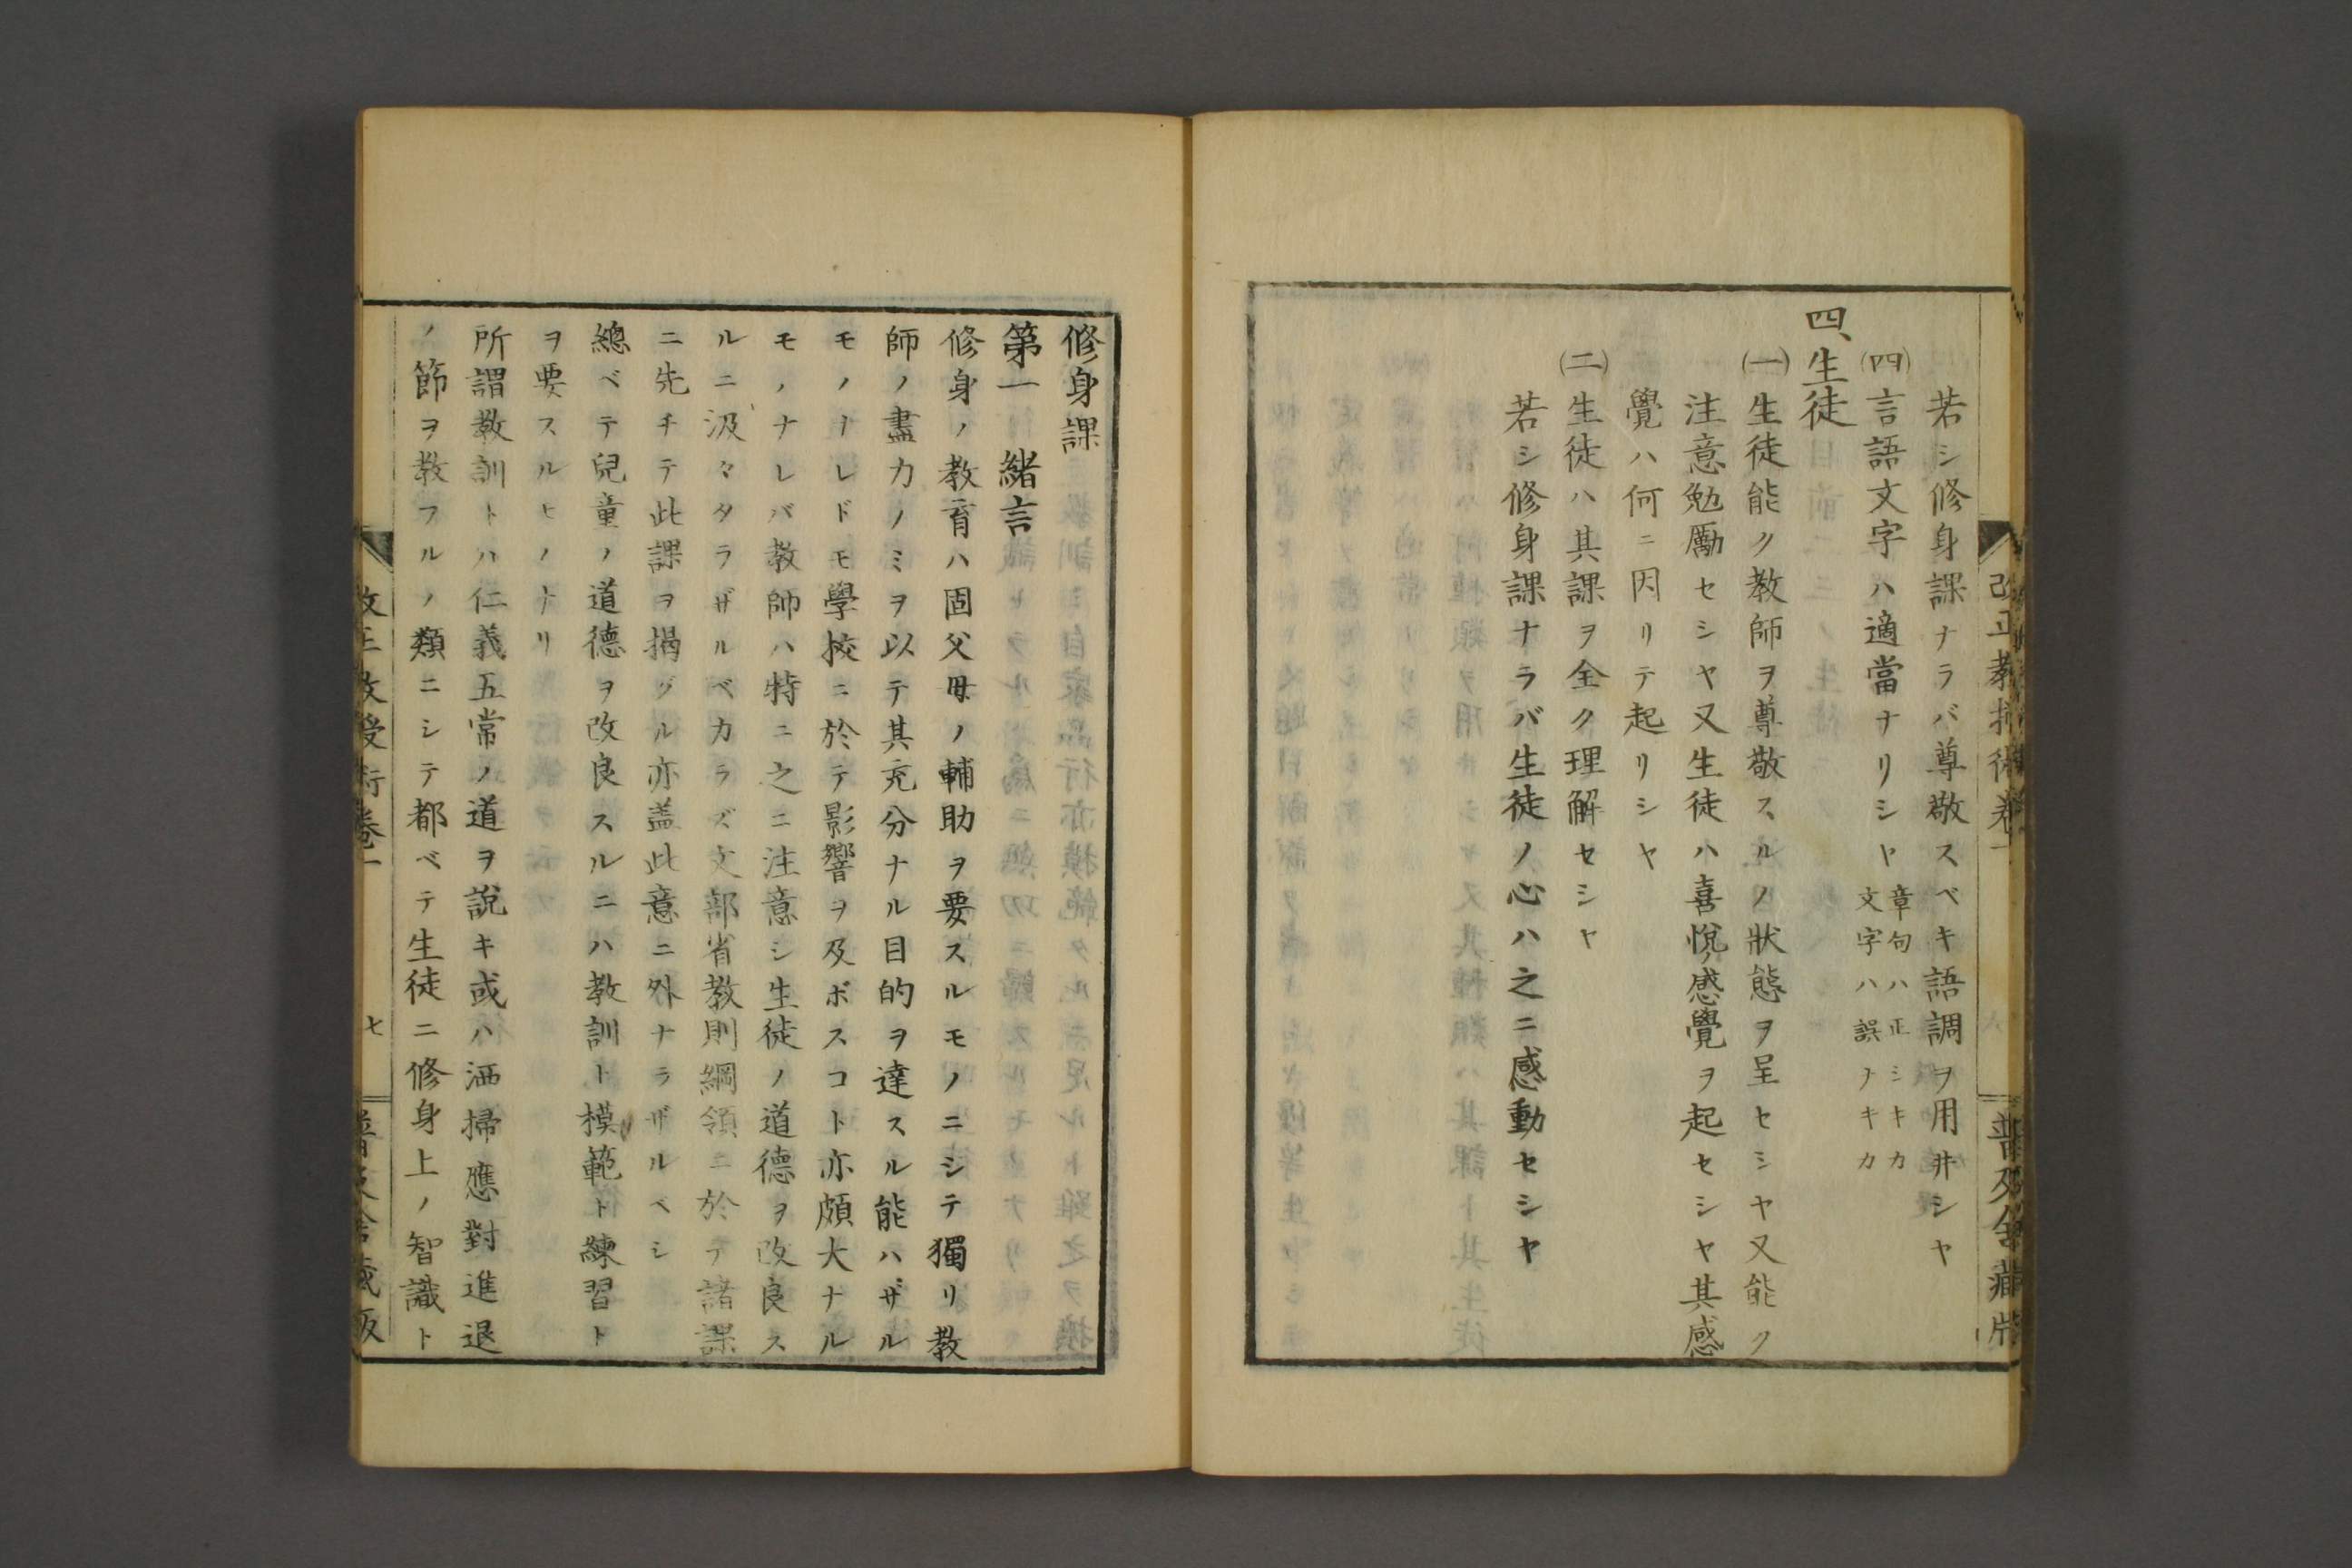 若シ修身課ナラバ尊敬スベキ語調ヲ用井シヤ
㈣言語文字ハ適當ナリシヤ 章句ハ正シキカ
文字ハ誤ナキカ
四、生徒
㈠生徒能ク教師ヲ尊敬スルノ狀態ヲ呈セシヤ又能ク
注意勉勵セシヤ又生徒ハ喜悅ノ感覺ヲ起セシヤ其感
覺ハ何ニ因リテ起リシヤ
㈡生徒ハ其課ヲ全ク理解セシヤ
若シ修身課ナラバ生徒ノ心ハ之ニ感動セシヤ
修身課
第一 緒言
修身ノ教育ハ固父母ノ輔助ヲ要スルモノニシテ獨リ教
師ノ盡力ノミヲ以テ其充分ナル目的ヲ達スル能ハザル
モノナレドモ學挍ニ於テ影響ヲ及ボスコト亦頗大ナル
モノナレバ教師ハ特ニ之ニ注意シ生徒ノ道德ヲ改良ス
ルニ汲々タラザルベカラズ文部省教則綱領ニ於テ諸課
ニ先チテ此課ヲ揭グル亦盖此意ニ外ナラザルベシ
總ベテ兒童ノ道德ヲ改良スルニハ教訓ト模範ト練習ト
ヲ要スルモノナリ
所謂教訓トハ仁義五常ノ道ヲ說キ或ハ洒掃應對進退
ノ節ヲ教フルノ類ニシテ都ベテ生徒ニ修身上ノ智識ト
改正教授術卷一
七
普及舍藏版